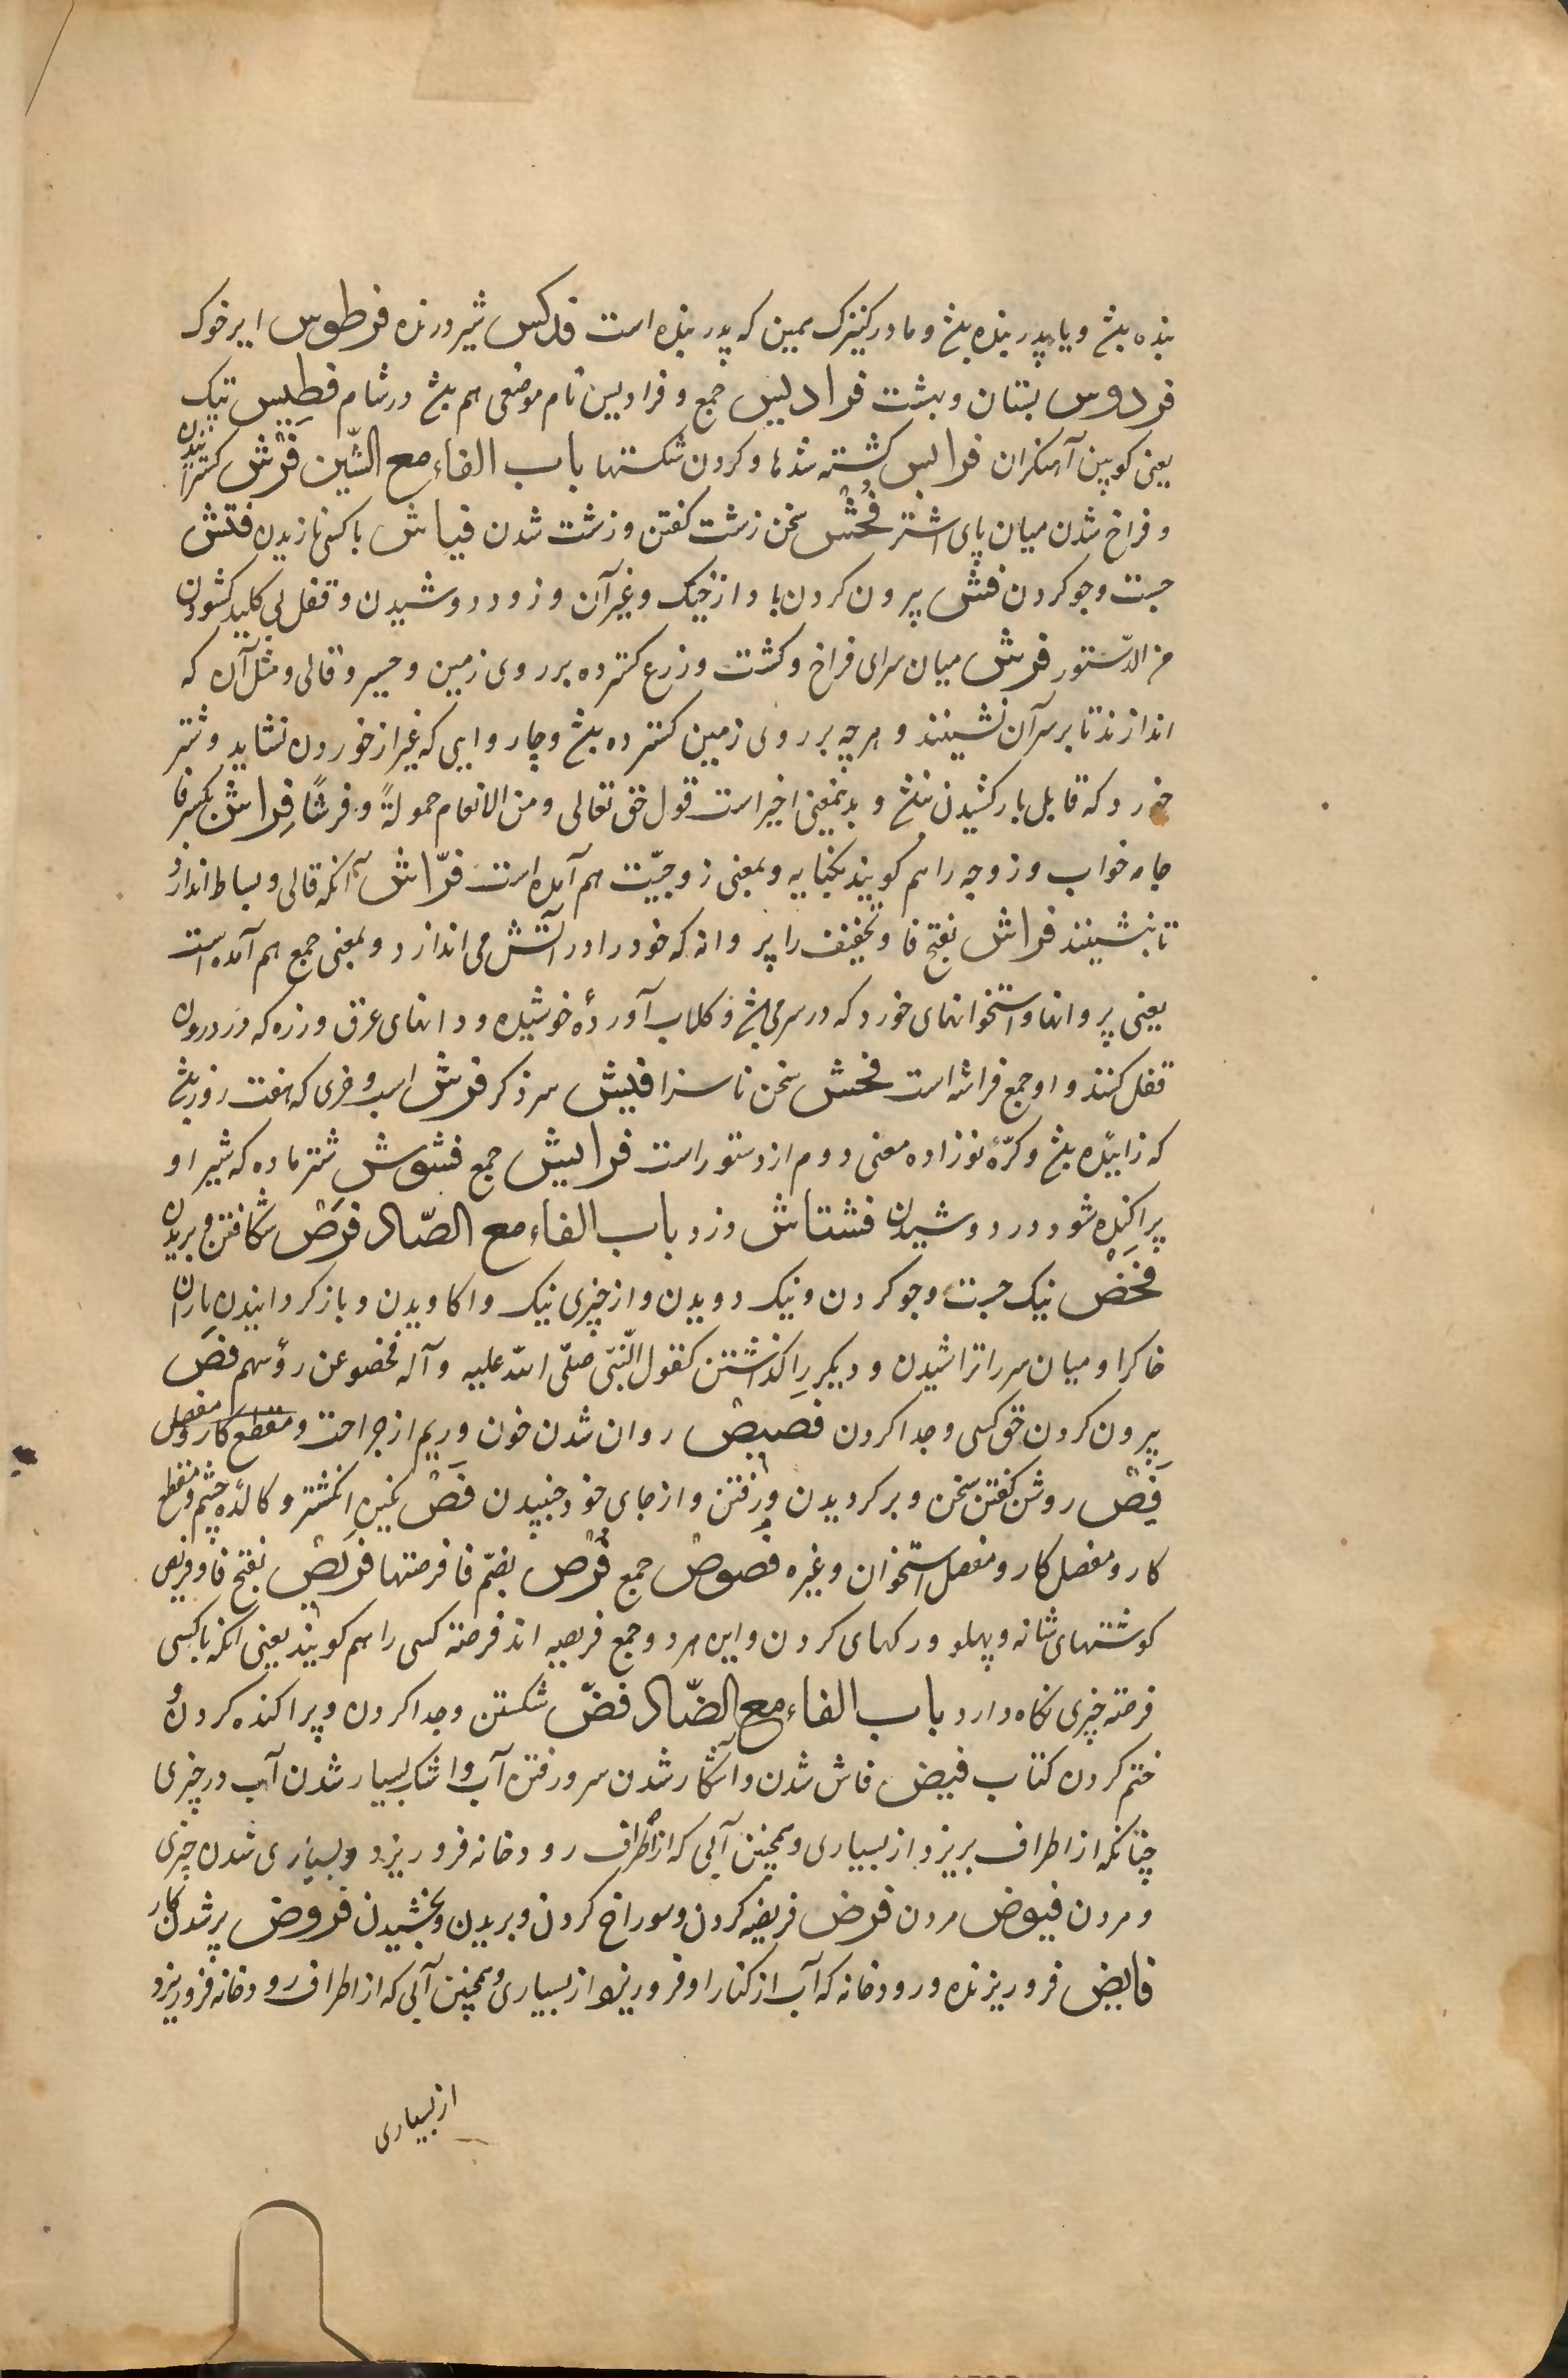 بنده بلخ و یا پدر بنده بلخ و مادر کنیزک همین که پدر بنده است فدکس شیر درنده فرطوس ایر خوک
فردوس بستان و بهشت فرادیس جمع و فرادیس نام موضعی هم بلخ در شام فطیس پتک
یعنی کوبین آهنکران فرایس کشته شدها و کردن شکستها باب الفاء مع الشّین فرش کسترانیدن
و فراخ شدن میان پای اشتر فحش سخن زشت کفتن و زشت شدن فیاش با کسی نازیدن فتش
جست و جو کردن فش بیرون کردن باد از خیک و غیر آن و زود دوشیدن و قفل بی کلید کشودن
من الدّستور فرش میان سرای فراخ و کشت و زرع کسترده بر روی زمین و حسیر و قالی و مثل آن که
اندازند تا بر سر آن نشینند و هر چه بر روی زمین کسترده بلخ و چاروایی که غیر از خوردن نشاید و شتر
خورد که قابل بار کشیدن نبلخ و بدینمعنی اخیر است قول حق تعالی و من الانعام حمولةً و فرشًا فِراش بکسر فا
جامه خواب و زوجه را هم کویند بکنایه و بمعنی زوجیّت هم آمده است فرّاش آنکه قالی و بساط اندازد
تا بنشینند فراش بفتح فا و تخفیف را پروانه که خود را در آتش می اندازد و بمعنی جمع هم آمده است
یعنی پروانها و استخوانهای خورد که در سر می بلخ و کلاب آوردهٔ خوشیده و دانهای عرق و زره که در درون
قفل کنند و او جمع فراشه است فحش سخن ناسزا فیش سر ذکر فرش اسب و خری که هفت روز بلخ
که زاییده بلخ و کرّهٔ نوزاده معنی دوم از دستور است فرایش جمع فشوش شتر ماده که شیر او
پراکنده شود در دوشیدن فشتاش دزد باب الفاء مع الصّاد فرص شکافتن و بریدن
فحص نیک جست و جو کردن و نیک دویدن و از چیزی نیک واکاویدن و باز کردانیدن باران
خاکرا و میان سر را تراشیدن و دیکر را کذاشتن کقول النّبیّ صلّی الله علیه و آله فحصو عن رؤسهم فص
بیرون کردن حق کسی و جدا کردن فصیص روان شدن خون و ریم از جراحت و مقطع کار و مفصل
فیص روشن کفتن سخن و برکردیدن و رفتن و از جای خود جنبیدن فص نکین انکشتر و کالهٔ چشم و مقطع
کار و مفصل کار و مفصل استخوان و غیره فصوص جمع فرص بضمّ فا فرصتها فریص بفتح فا و فرایص
کوشتهای شانه و پهلو و رکهای کردن و این هر دو جمع فریصه اند فرصته کسی را هم کویند یعنی انکه با کسی
فرصته چیزی نکاه دارد باب الفاء مع الضّاد فضّ شکستن و جدا کردن و پراکنده کردن و
ختم کردن کتاب فیض فاش شدن و آشکار شدن سر و رفتن آب و اشک بسیار شدن آب در چیزی
چنانکه از اطراف بریزد از بسیاری و همچنین آبی که از اطراف رودخانه فرو ریزد و بسیاری شدن چیزی
و مردن فیوض مردن فرض فریضه کردن و سوراخ کردن و بریدن و بخشیدن فروض پیر شدن کار
فایض فرو ریزنده و رودخانه که آب از کنار او فرو ریزد از بسیاری و همچنین آبی که از اطراف رودخانه فرو ریزد
از بسیاری